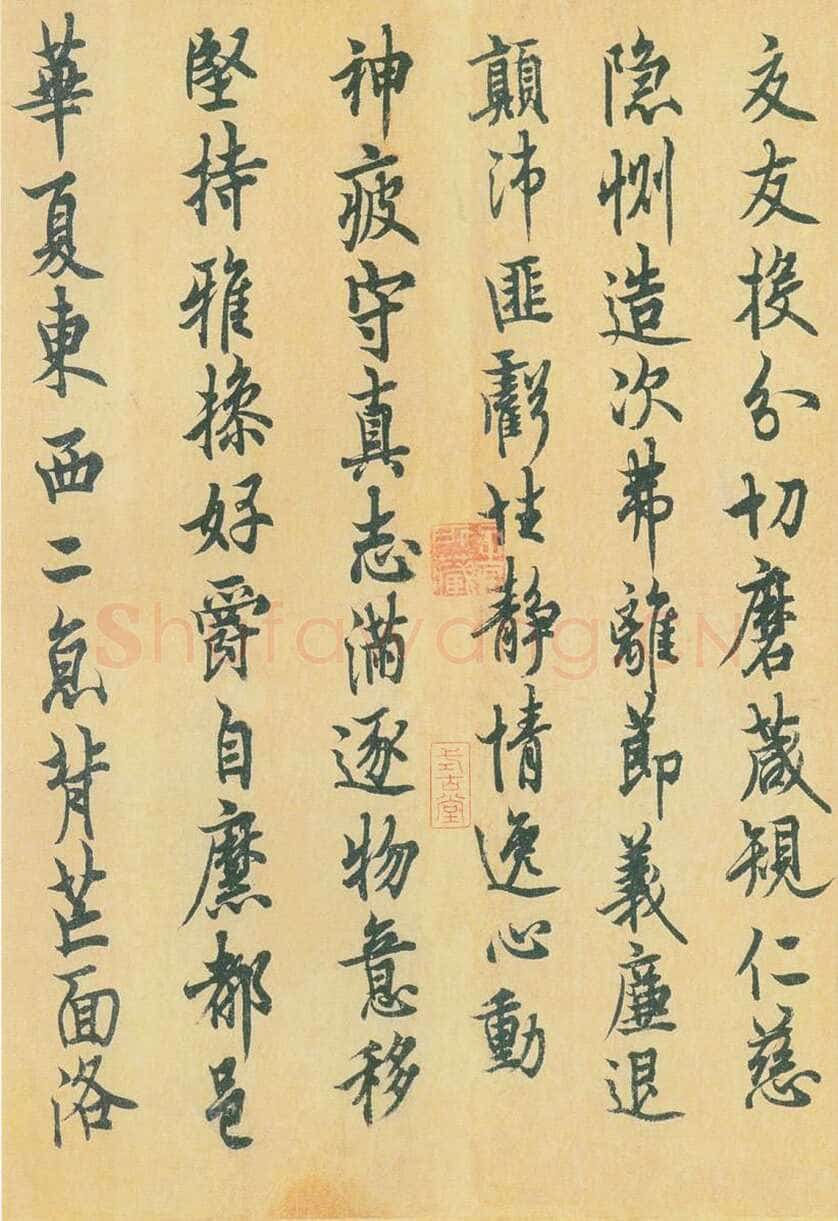 交友投分切磨葴規仁慈
隐惻造次弗離節義廉退
顛沛匪虧性静情逸心動
神疲守真志滿逐物意移
堅持雅操好爵自縻都邑
華夏東西二京背芒面洛
式古堂
Shufawang.CN